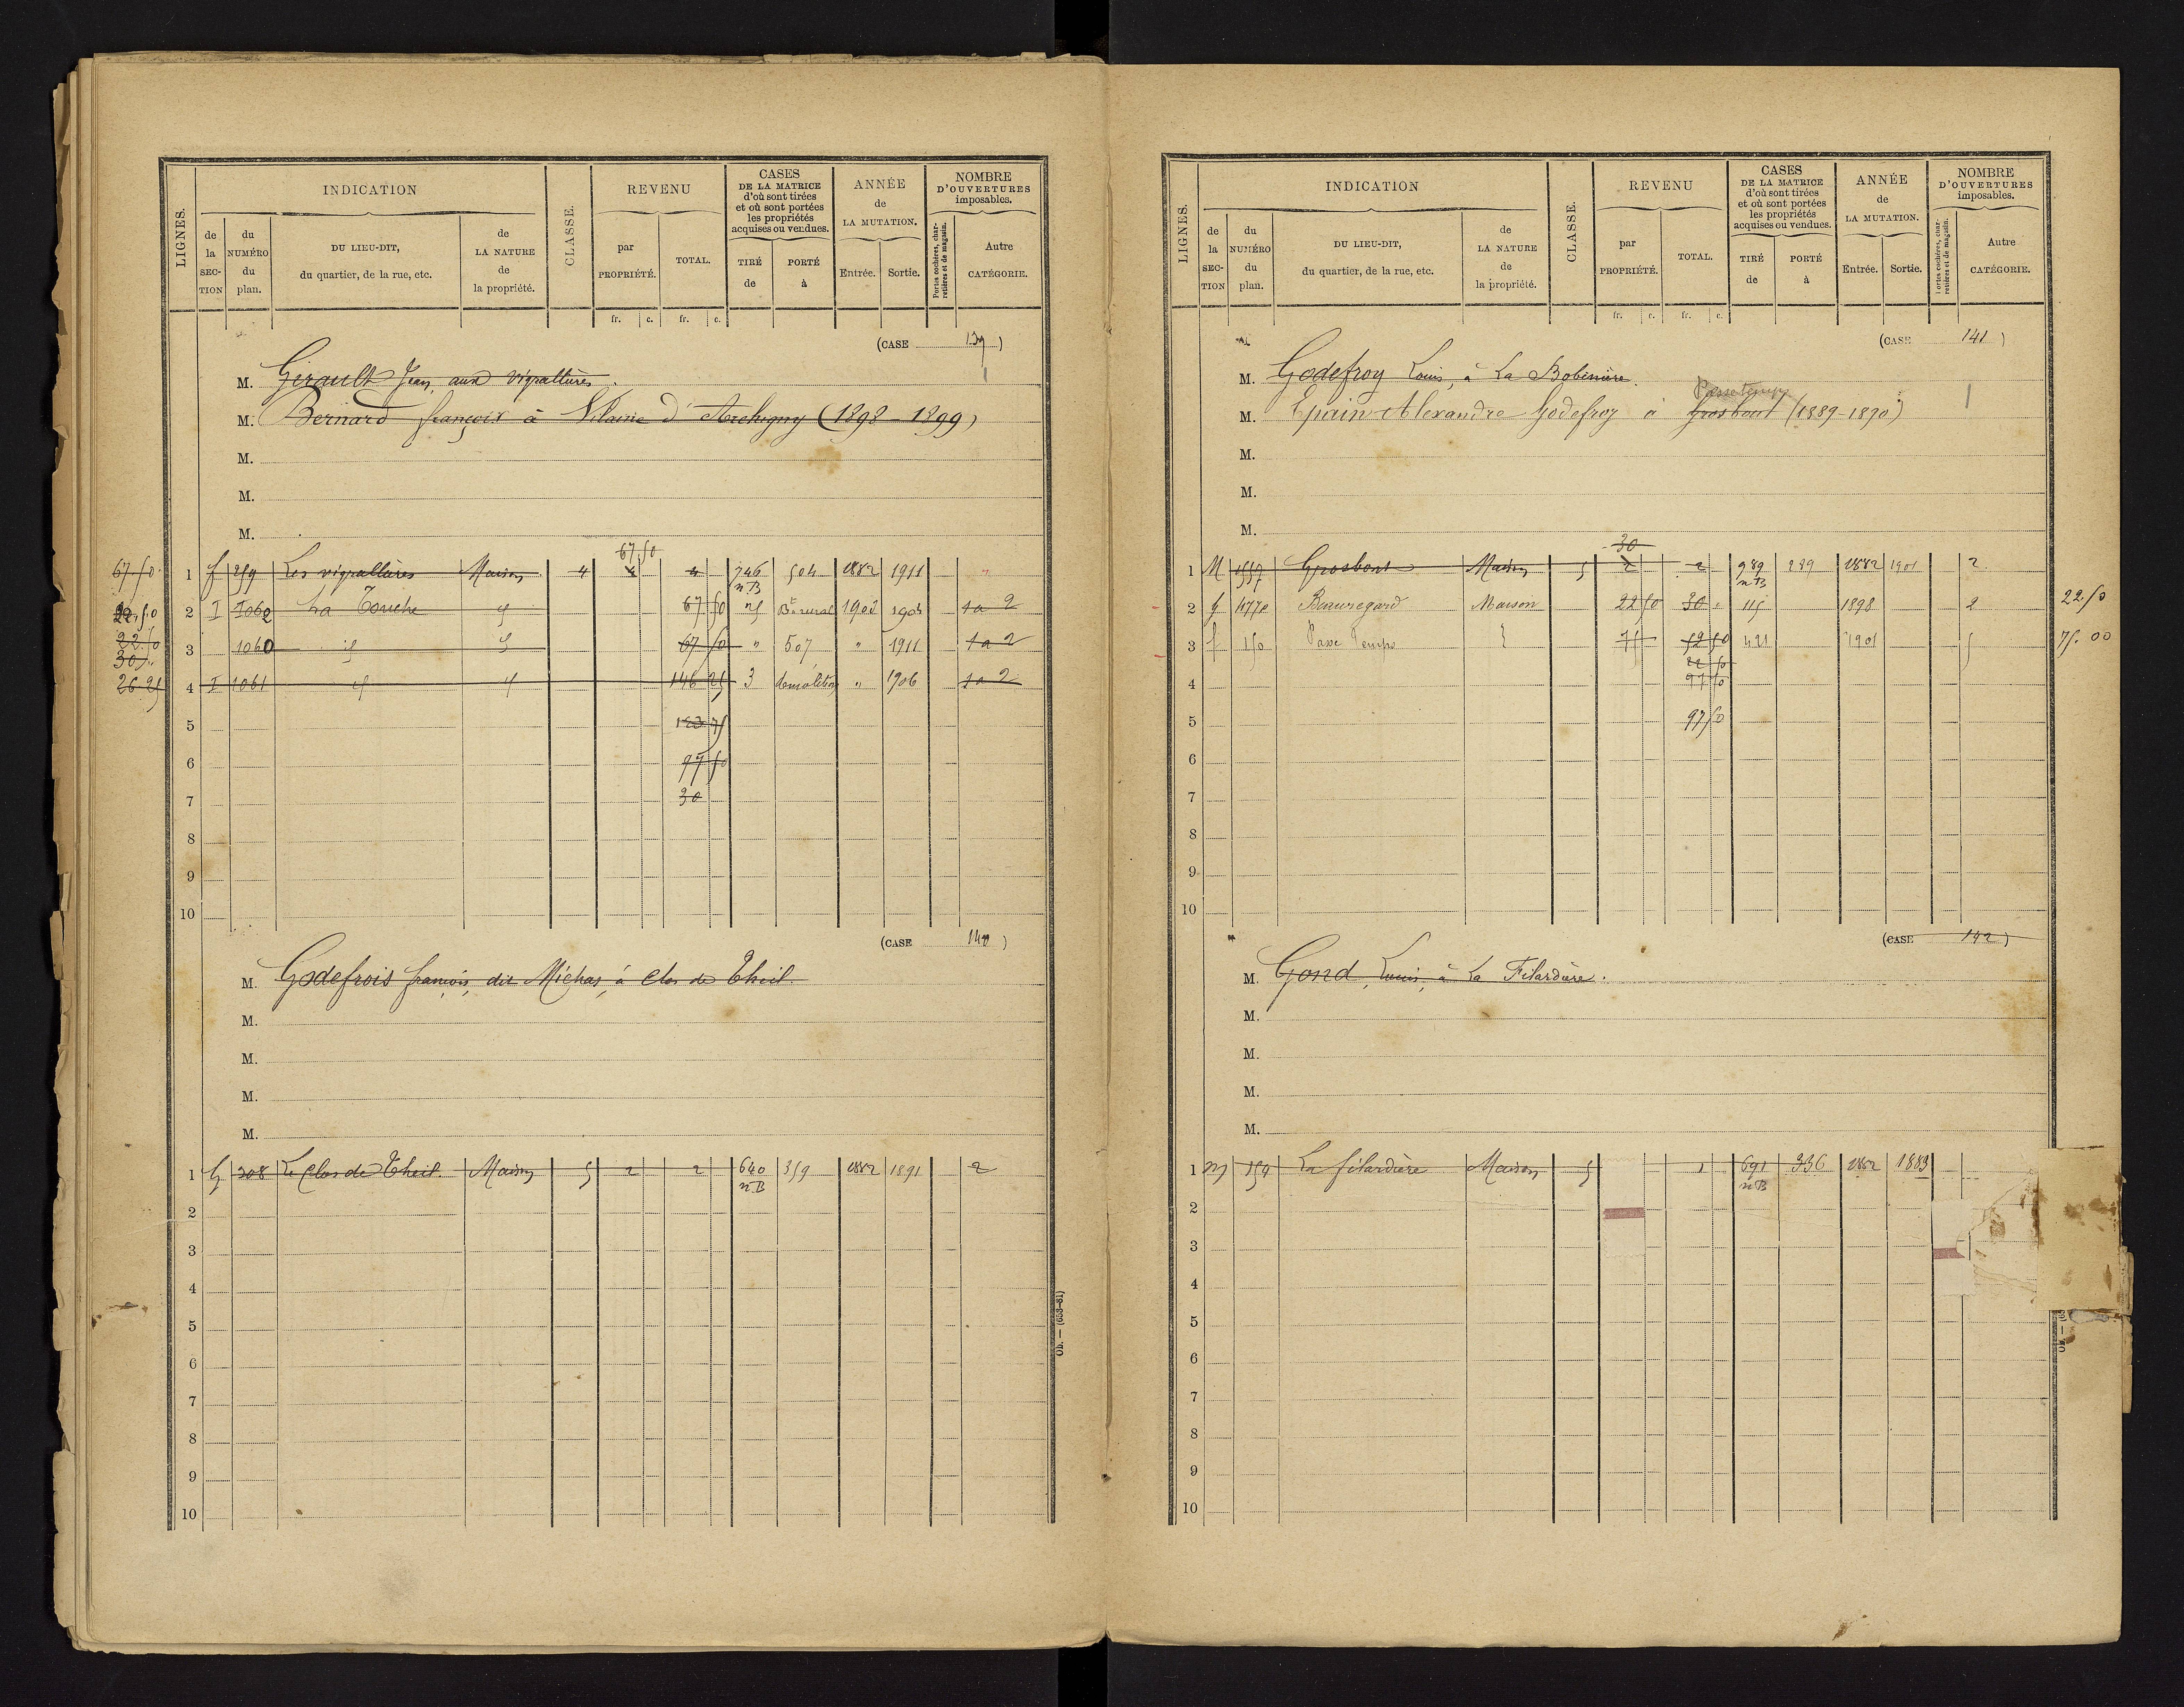 LIGNES. INDICATION CLASSE. REVENU CASES DE LA MATRICE d'où sont tirées et où sont portées les propriétés acquises ou vendues. ANNÉE de LA MUTATION. NOMBRE D'OUVERTURES imposables.
de la SECTION du NUMÉRO du plan. DU LIEU-DIT, du quartier, de la rue, etc. de LA NATURE de la propriété. par PROPRIÉTÉ. TOTAL. TIRÉ de PORTÉ à Entrée. Sortie. Portes cochères, charretières et de magasin. Autre CATÉGORIE.
fr. c. fr. c.
(CASE 139)
M. Girault Jean, aux vigrallières.
M. Bernard françois à Vilaine d'Archigny (1898-1899)
M.
M.
M.
67 50
67 50 1 f 259 Les vigrallières Maison 4 4 4 746 504 1882 1911 "
nB
22.50 2 I 1062 La Touche id 67 50 25 1903 1904 1a 2
22.50 3 1060 id id 67 50 " 507 " 1911 1a 2
30 "
26.25 4 I 1061 id id 146 25 3 démolition " 1906 1a 2
5 123 75
6 97 50
7 30
8
9
10
(CASE 140)
M. Godefrois françois, dit Michas, à Clos de Theil.
M.
M.
M.
M.
1 G 308 Le Clos de Theil. Maison 5 2 2 640 359 1882 1891 2
nB
2
3
4
5
6
7
8
9
10
Ob. — (653-81)
LIGNES. INDICATION CLASSE. REVENU CASES DE LA MATRICE d'où sont tirées et où sont portées les propriétés acquises ou vendues. ANNÉE de LA MUTATION. NOMBRE D'OUVERTURES imposables.
de la SECTION du NUMÉRO du plan. DU LIEU-DIT, du quartier, de la rue, etc. de LA NATURE de la propriété. par PROPRIÉTÉ. TOTAL. TIRÉ de PORTÉ à Entrée. Sortie. Portes cochères, charretières et de magasin. Autre CATÉGORIE.
fr. c. fr. c.
(CASE 141)
M. Godefroy Louis, à La Bobinière.
Passetemps
M. Epain Alexandre Godefroy à Grosbout (1889-1890)
M.
M.
M.
30
1 M 1557 Grosbout Maison 5 2 2 989 289 1882 1901 2
nB
2 G 477 Beauregard Maison 22 50 30 " 115 1898 2 22 50
3 f 150 Passe Temps 75 52 50 421 1901 5 75.00
22 50
4 97 50
5 97 50
6
7
8
9
10
(CASE 142)
M. Gond, Louis, à La Filardière.
M.
M.
M.
M.
1 M 154 La filardière Maison 5 1 691 336 1882 1883
nB
2
3
4
5
6
7
8
9
10